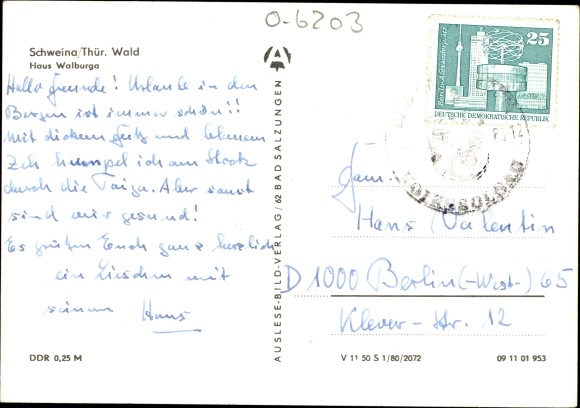 O-6203
Schweina/Thür. Wald
Haus Walburga
Hallo Freunde! Urlaub in den
Bergen ist immer schön!!
Mit dickem und blauem
Zeh humpel ich am Stock
durch die Taiga. Aber sonst
sind wir gesund!
Es grüßen Euch ganz herzlich
ein Lieschen mit
seinem Hans
DDR 0,25 M
AUSLESE-BILD-VERLAG/62 BAD SALZUNGEN
25
Berlin-Alexanderplatz
DEUTSCHE DEMOKRATISCHE REPUBLIK
Fam.
Hans Valentin
D 1000 Berlin (-West-) 65
Klever-Str. 12
V 11 50 S 1/80/2072
09 11 01 953